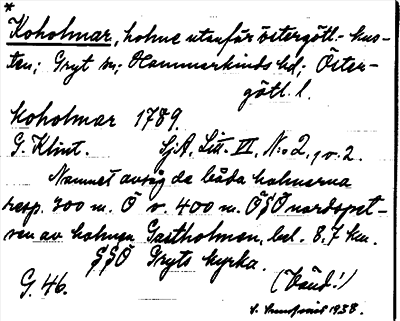 *
Koholmar, holme utanför östergötl.-kus-
ten; Gryt sn; Hammarkinds hd; Öster-
götl. l.
Koholmar 1789.
G. Klint. SjA, Litt. VI, No 2, v. 2.
Namnet avsåg de båda holmarna
resp. 700 m. Ö o. 400 m. ÖSÖ nordspet-
sen av holmen Gastholmen, bel. 8,7 km.
SSÖ Gryts kyrka.
G. 46. (Vänd!)
1938.